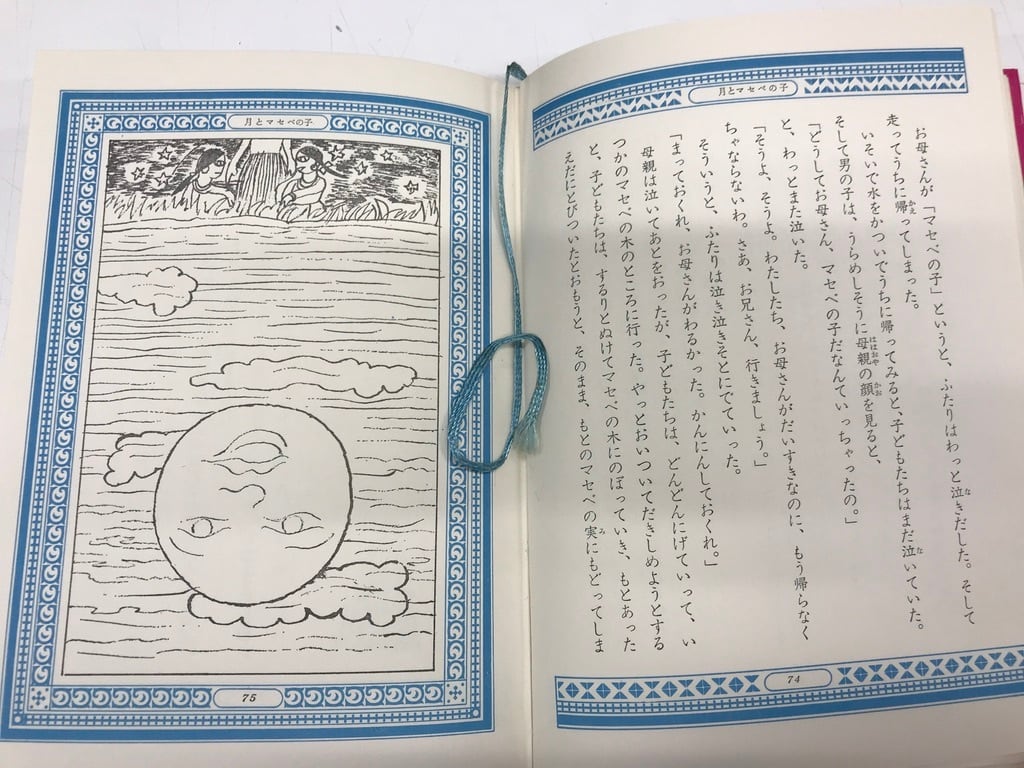 月とマセベの子
お母さんが「マセベの子」というと、ふたりはわっと泣きだした。そして
走ってうちに帰ってしまった。
いそいで水をかついでうちに帰ってみると、子どもたちはまだ泣いていた。
そして男の子は、うらめしそうに母親の顔を見ると、
「どうしてお母さん、マセベの子だなんていっちゃったの。」
と、わっとまた泣いた。
「そうよ、そうよ。わたしたち、お母さんがだいすきなのに、もう帰らなく
ちゃならないわ。さあ、お兄さん、行きましょう。」
そういうと、ふたりは泣き泣きそとにでていった。
「まっておくれ、お母さんがわるかった。かんにんしておくれ。」
母親は泣いてあとをおったが、子どもたちは、どんどんにげていって、い
つかのマセベの木のところに行った。やっとおいついてだきしめようとする
と、子どもたちは、するりとぬけてマセベの木にのぼっていき、もとあった
えだにとびついたとおもうと、そのまま、もとのマセベの実にもどってしま
74
月とマセベの子
75